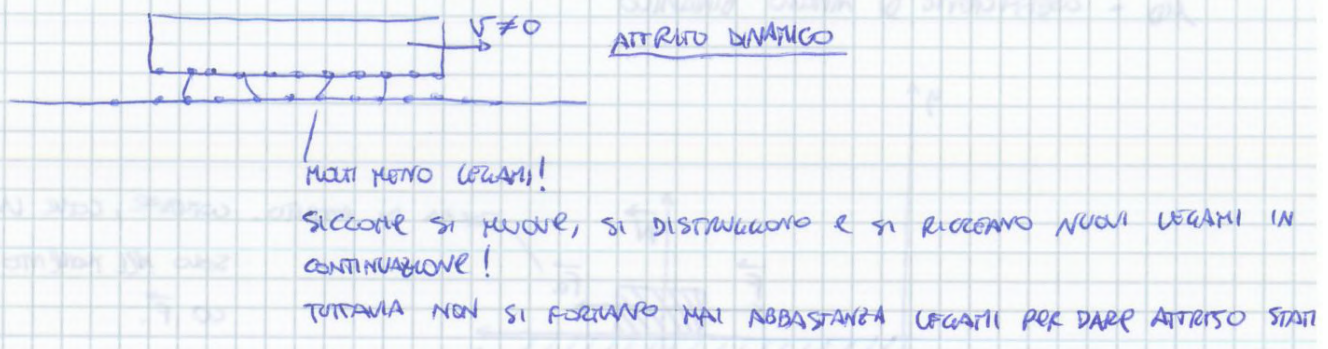 V ≠ 0
ATTRITO DINAMICO
MOLTI MENO LEGAMI!
SICCOME SI MUOVE, SI DISTRUGGONO E SI RICREANO NUOVI LEGAMI IN
CONTINUAZIONE!
TUTTAVIA NON SI FORMANO MAI ABBASTANZA LEGAMI PER DARE ATTRITO STATI